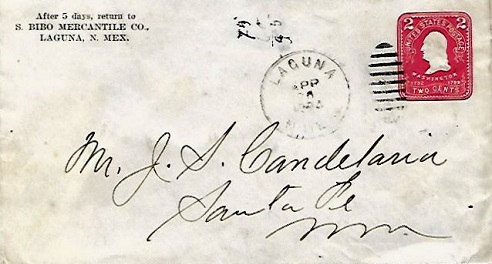 After 5 days, return to
S. BIBO MERCANTILE CO.,
LAGUNA, N. MEX.
2 2
UNITED STATES POSTAGE
WASHINGTON
1732 1799
TWO CENTS
LAGUNA
APR
Mr. J. S. Candelaria
Santa Fe